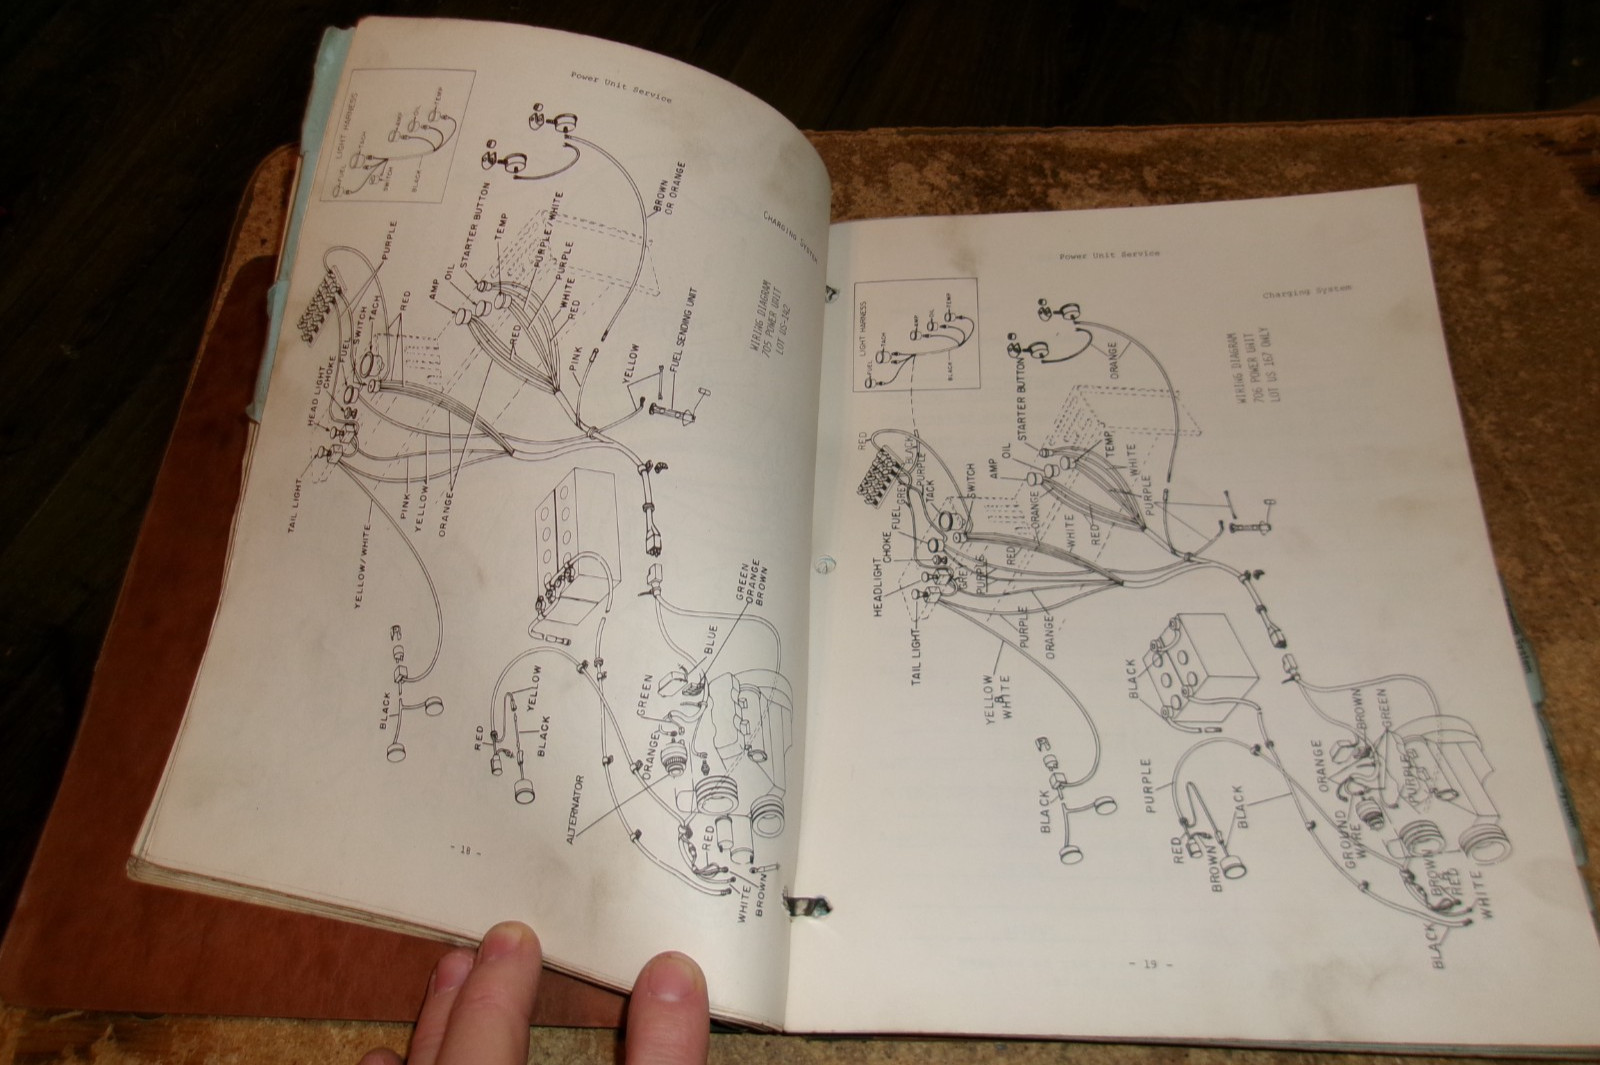 Power Unit Service
CHARGING SYSTEM
WIRING DIAGRAM
705 POWER UNIT
LIGHT HARNESS
FUEL
TACH
SWITCH
AMP
OIL
TEMP
BLACK
PURPLE
BROWN
OR ORANGE
STARTER BUTTON
TEMP
PURPLE/WHITE
PURPLE
WHITE
RED
OIL
AMP
RED
RED
TACH
SWITCH
FUEL
CHOKE
HEAD LIGHT
TAIL LIGHT
PINK
YELLOW
FUEL SENDING UNIT
PINK
YELLOW
ORANGE
YELLOW/WHITE
GREEN
ORANGE
BROWN
BLUE
GREEN
ORANGE
BLACK
RED
YELLOW
BLACK
ALTERNATOR
RED
WHITE
BROWN
- 18 -
Power Unit Service
Charging System
WIRING DIAGRAM
706 POWER UNIT
LOT US 167 ONLY
LIGHT HARNESS
FUEL
TACH
AMP
OIL
TEMP
BLACK
ORANGE
STARTER BUTTON
RED
BLACK
PURPLE
TACK
GREY
FUEL
SWITCH
AMP
OIL
TEMP
WHITE
PURPLE
CHOKE
HEADLIGHT
TAIL LIGHT
ORANGE
WHITE
RED
RED
PURPLE
PURPLE
ORANGE
YELLOW
WHITE
BLACK
BLACK
PURPLE
RED
BROWN
BLACK
ORANGE
BROWN
GREEN
PURPLE
GROUND
WIRE
BROWN
RED
WHITE
BLACK
- 19 -